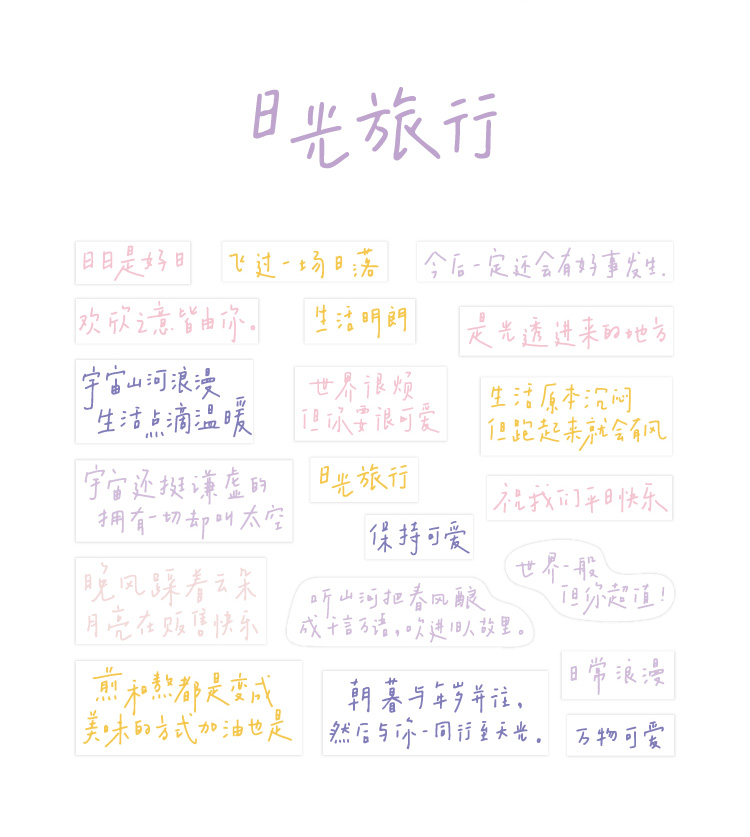 日光旅行
日日是好日
飞过一场日落
今后一定还会有好事发生.
欢欣之意皆由你。
生活明朗
是光透进来的地方
宇宙山河浪漫
生活点滴温暖
世界很烦
但你要很可爱
生活原本沉闷
但跑起来就会有风
宇宙还挺谦虚的
拥有一切却叫太空
日光旅行
祝我们平日快乐
保持可爱
晚风踩着云朵
月亮在贩售快乐
听山河把春风酿
成千言万语,吹进旧人故里。
世界一般
但你超值!
煎和熬都是变成
美味的方式加油也是
朝暮与年岁并往,
然后与你一同行至天光.
日常浪漫
万物可爱